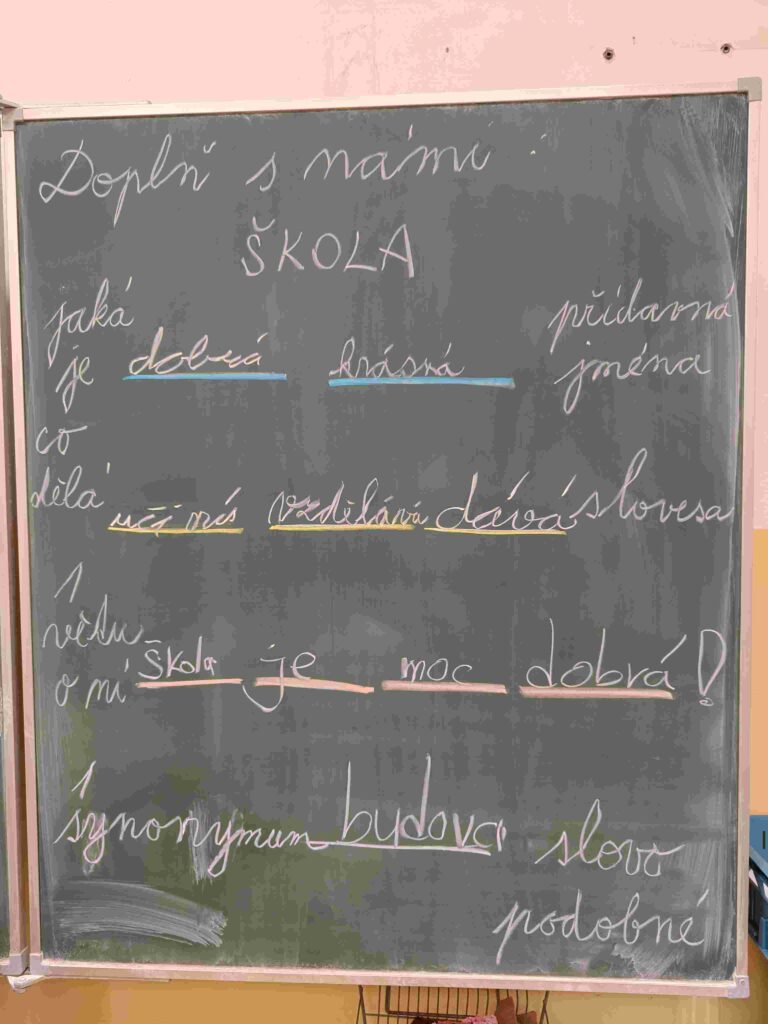 Doplň s námi :
ŠKOLA
jaká přídavná
je dobrá krásná jména
co
dělá učí nás vzdělává dává slovesa
1
větu
o ní Škola je moc dobrá!
1
synonymum budova slovo
podobné